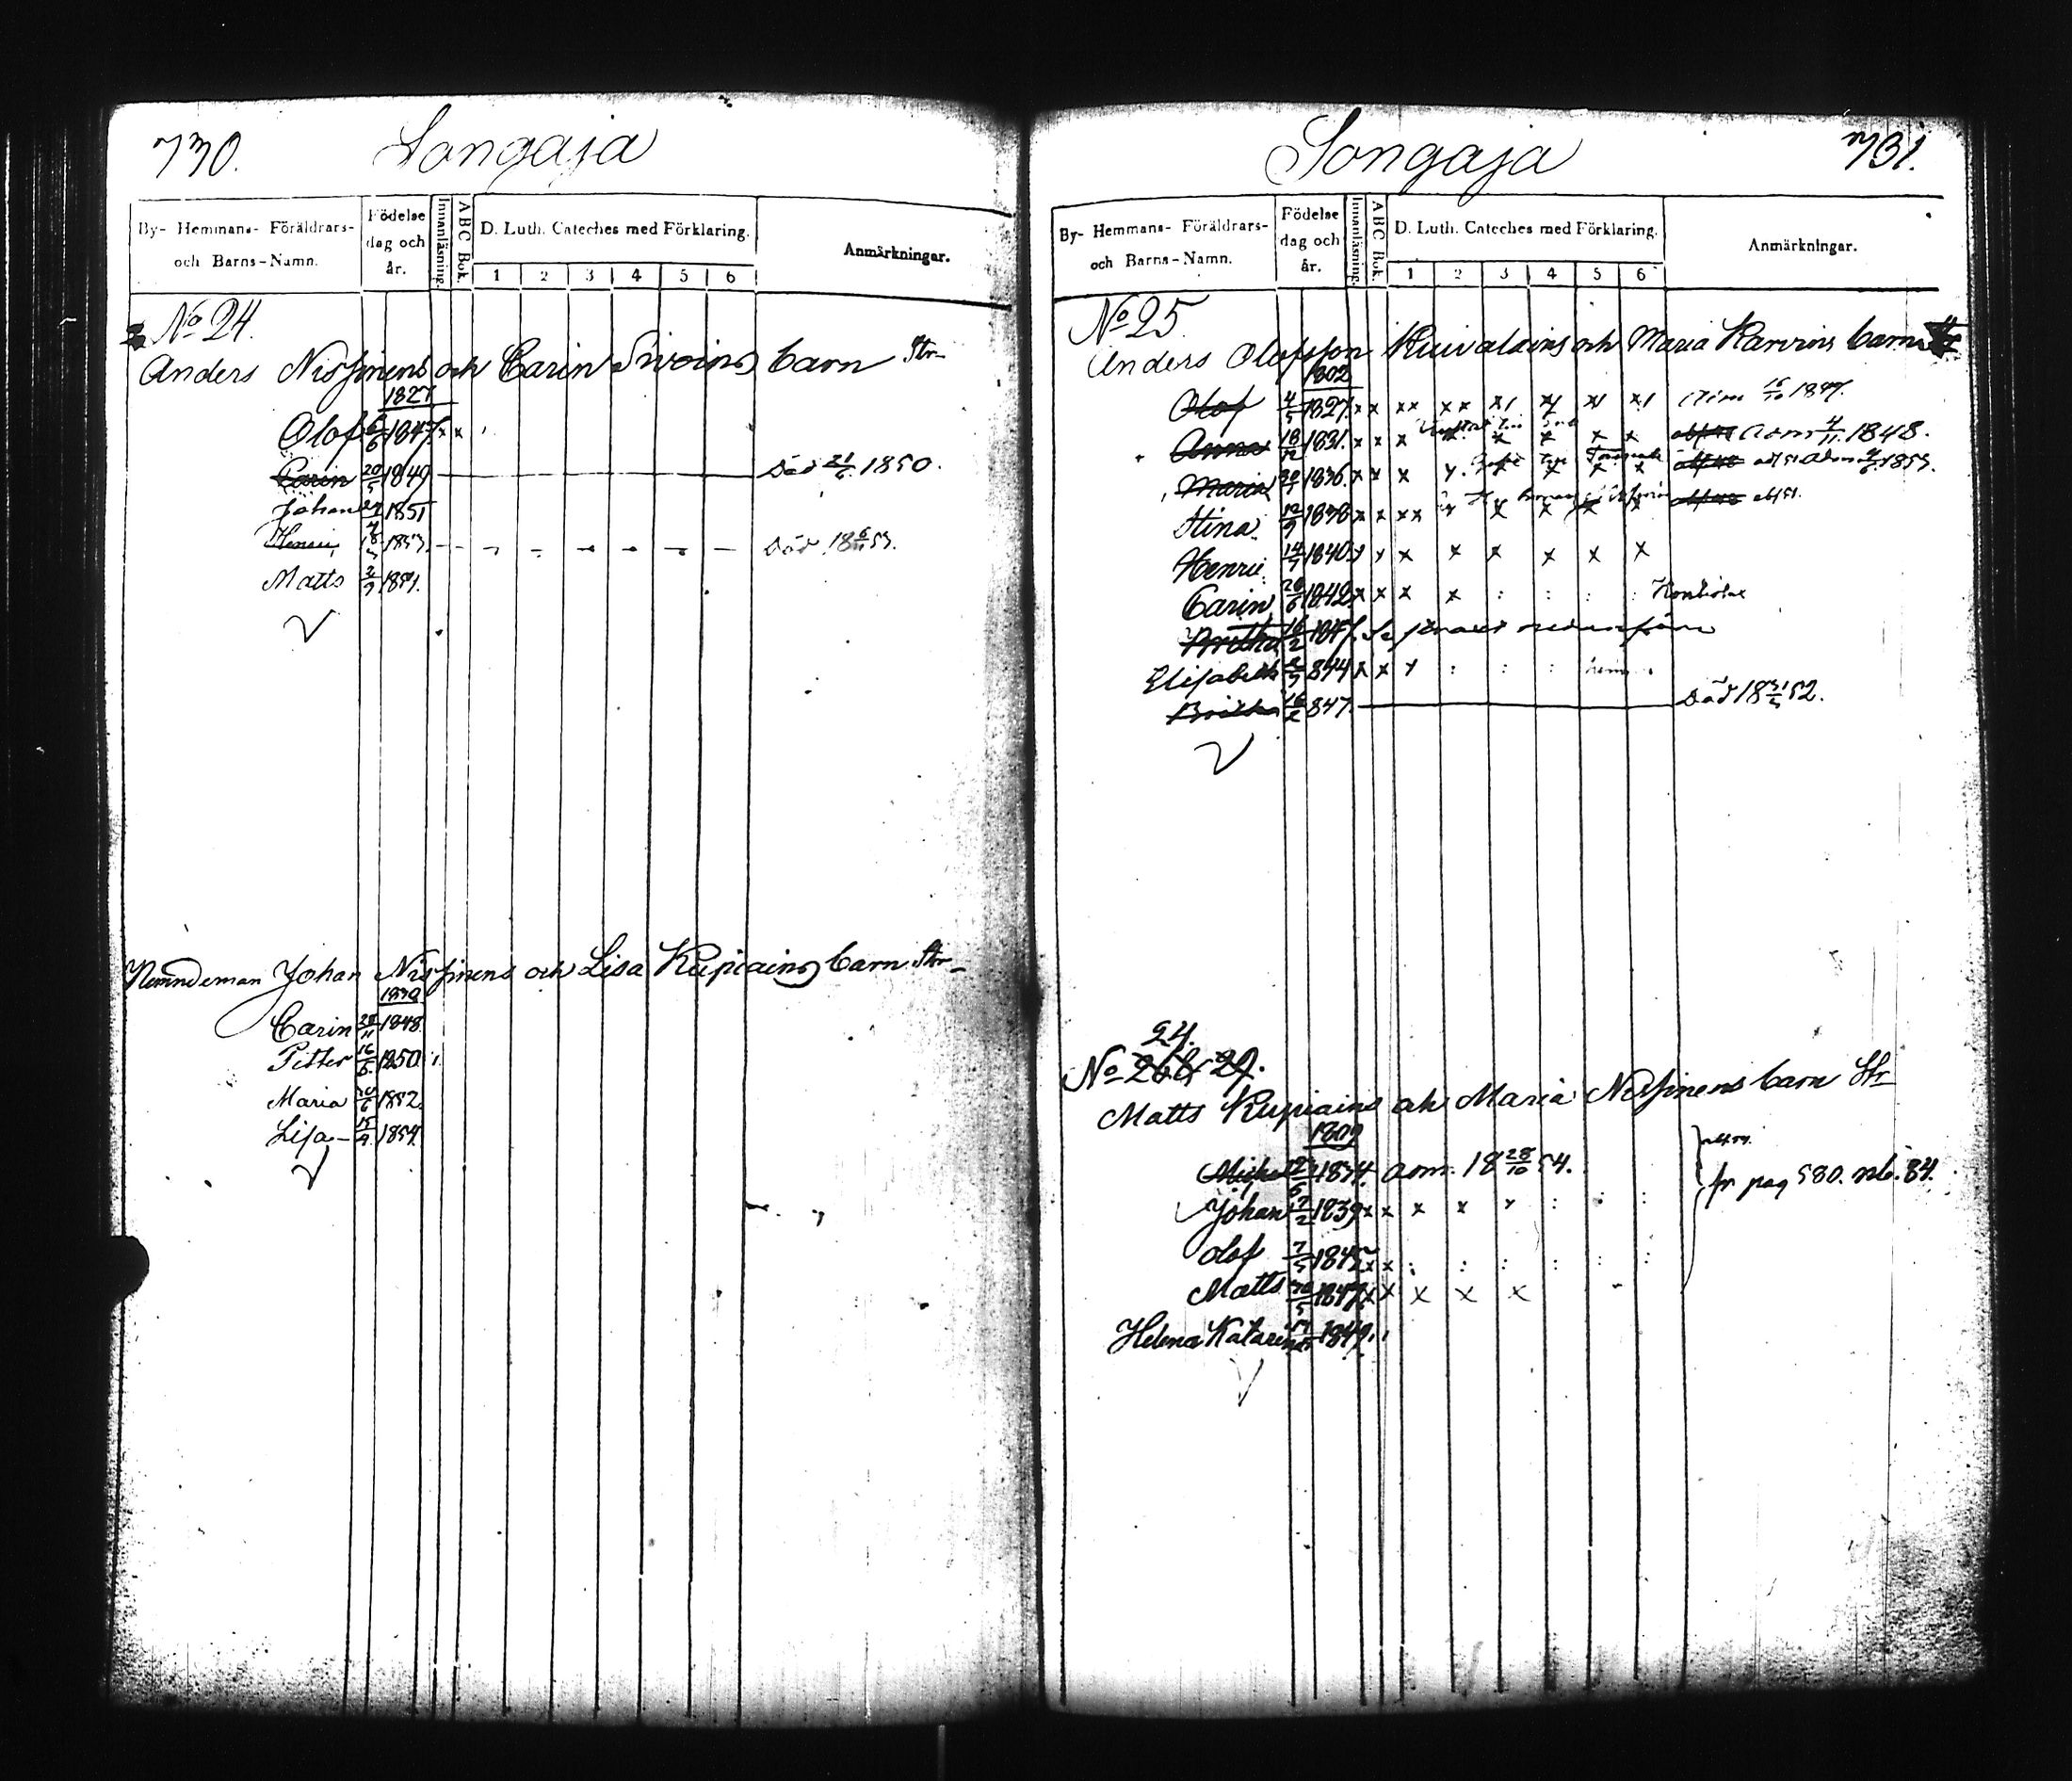 730. Songaja
By- Hemmans- Föräldrars- och Barns-Namn.
Födelse dag och år.
Innanläsning.
ABC Bok.
D. Luth. Cateches med Förklaring.
1 2 3 4 5 6
Anmärkningar.
No 24.
Anders Nissinens och Carin Sivoins barn
1827
Olof 6/6 1847 x x
Carin 20/5 1849 Död 21/5 1850.
Johan 1851
Henric 1853 Död 1853.
Matts 2/9 1854.
Nemndeman Johan Nissinens och Lisa Kupiains barn
Carin 1848
Petter 16/6 1850
Maria 1852
Lisa 15/9 1854
Songaja 731.
By- Hemmans- Föräldrars- och Barns-Namn.
Födelse dag och år.
Innanläsning.
ABC Bok.
D. Luth. Cateches med Förklaring.
1 2 3 4 5 6
Anmärkningar.
No 25
Anders Olofsson Kuivalains och Maria Karvins barn
1802
Olof 4/5 1827 x x xx xx 1847.
Anna 18/12 1831. x x x x x x x adm 4/11 1848.
Maria 1836 x x x x x x x 1853.
Stina 12/9 1838 x x xx x x x x
Henric 14/7 1840 x x x x x x x x
Carin 26/6 1842 x x x x
Britha 16/2 1847
Elisabeth 1844 x x x
Britha 16/2 1847. Död 1852.
24.
No 26 & 29.
Matts Kupiains och Maria Nissinens barn
1809
Michel 1834 adm. 18 28/10 54.
fr pag 580. nb. 84.
Johan 1839 x x x x x
Olof 7/5 1845 x x
Matts 1847 x x x x x
Helena Katarina 1849